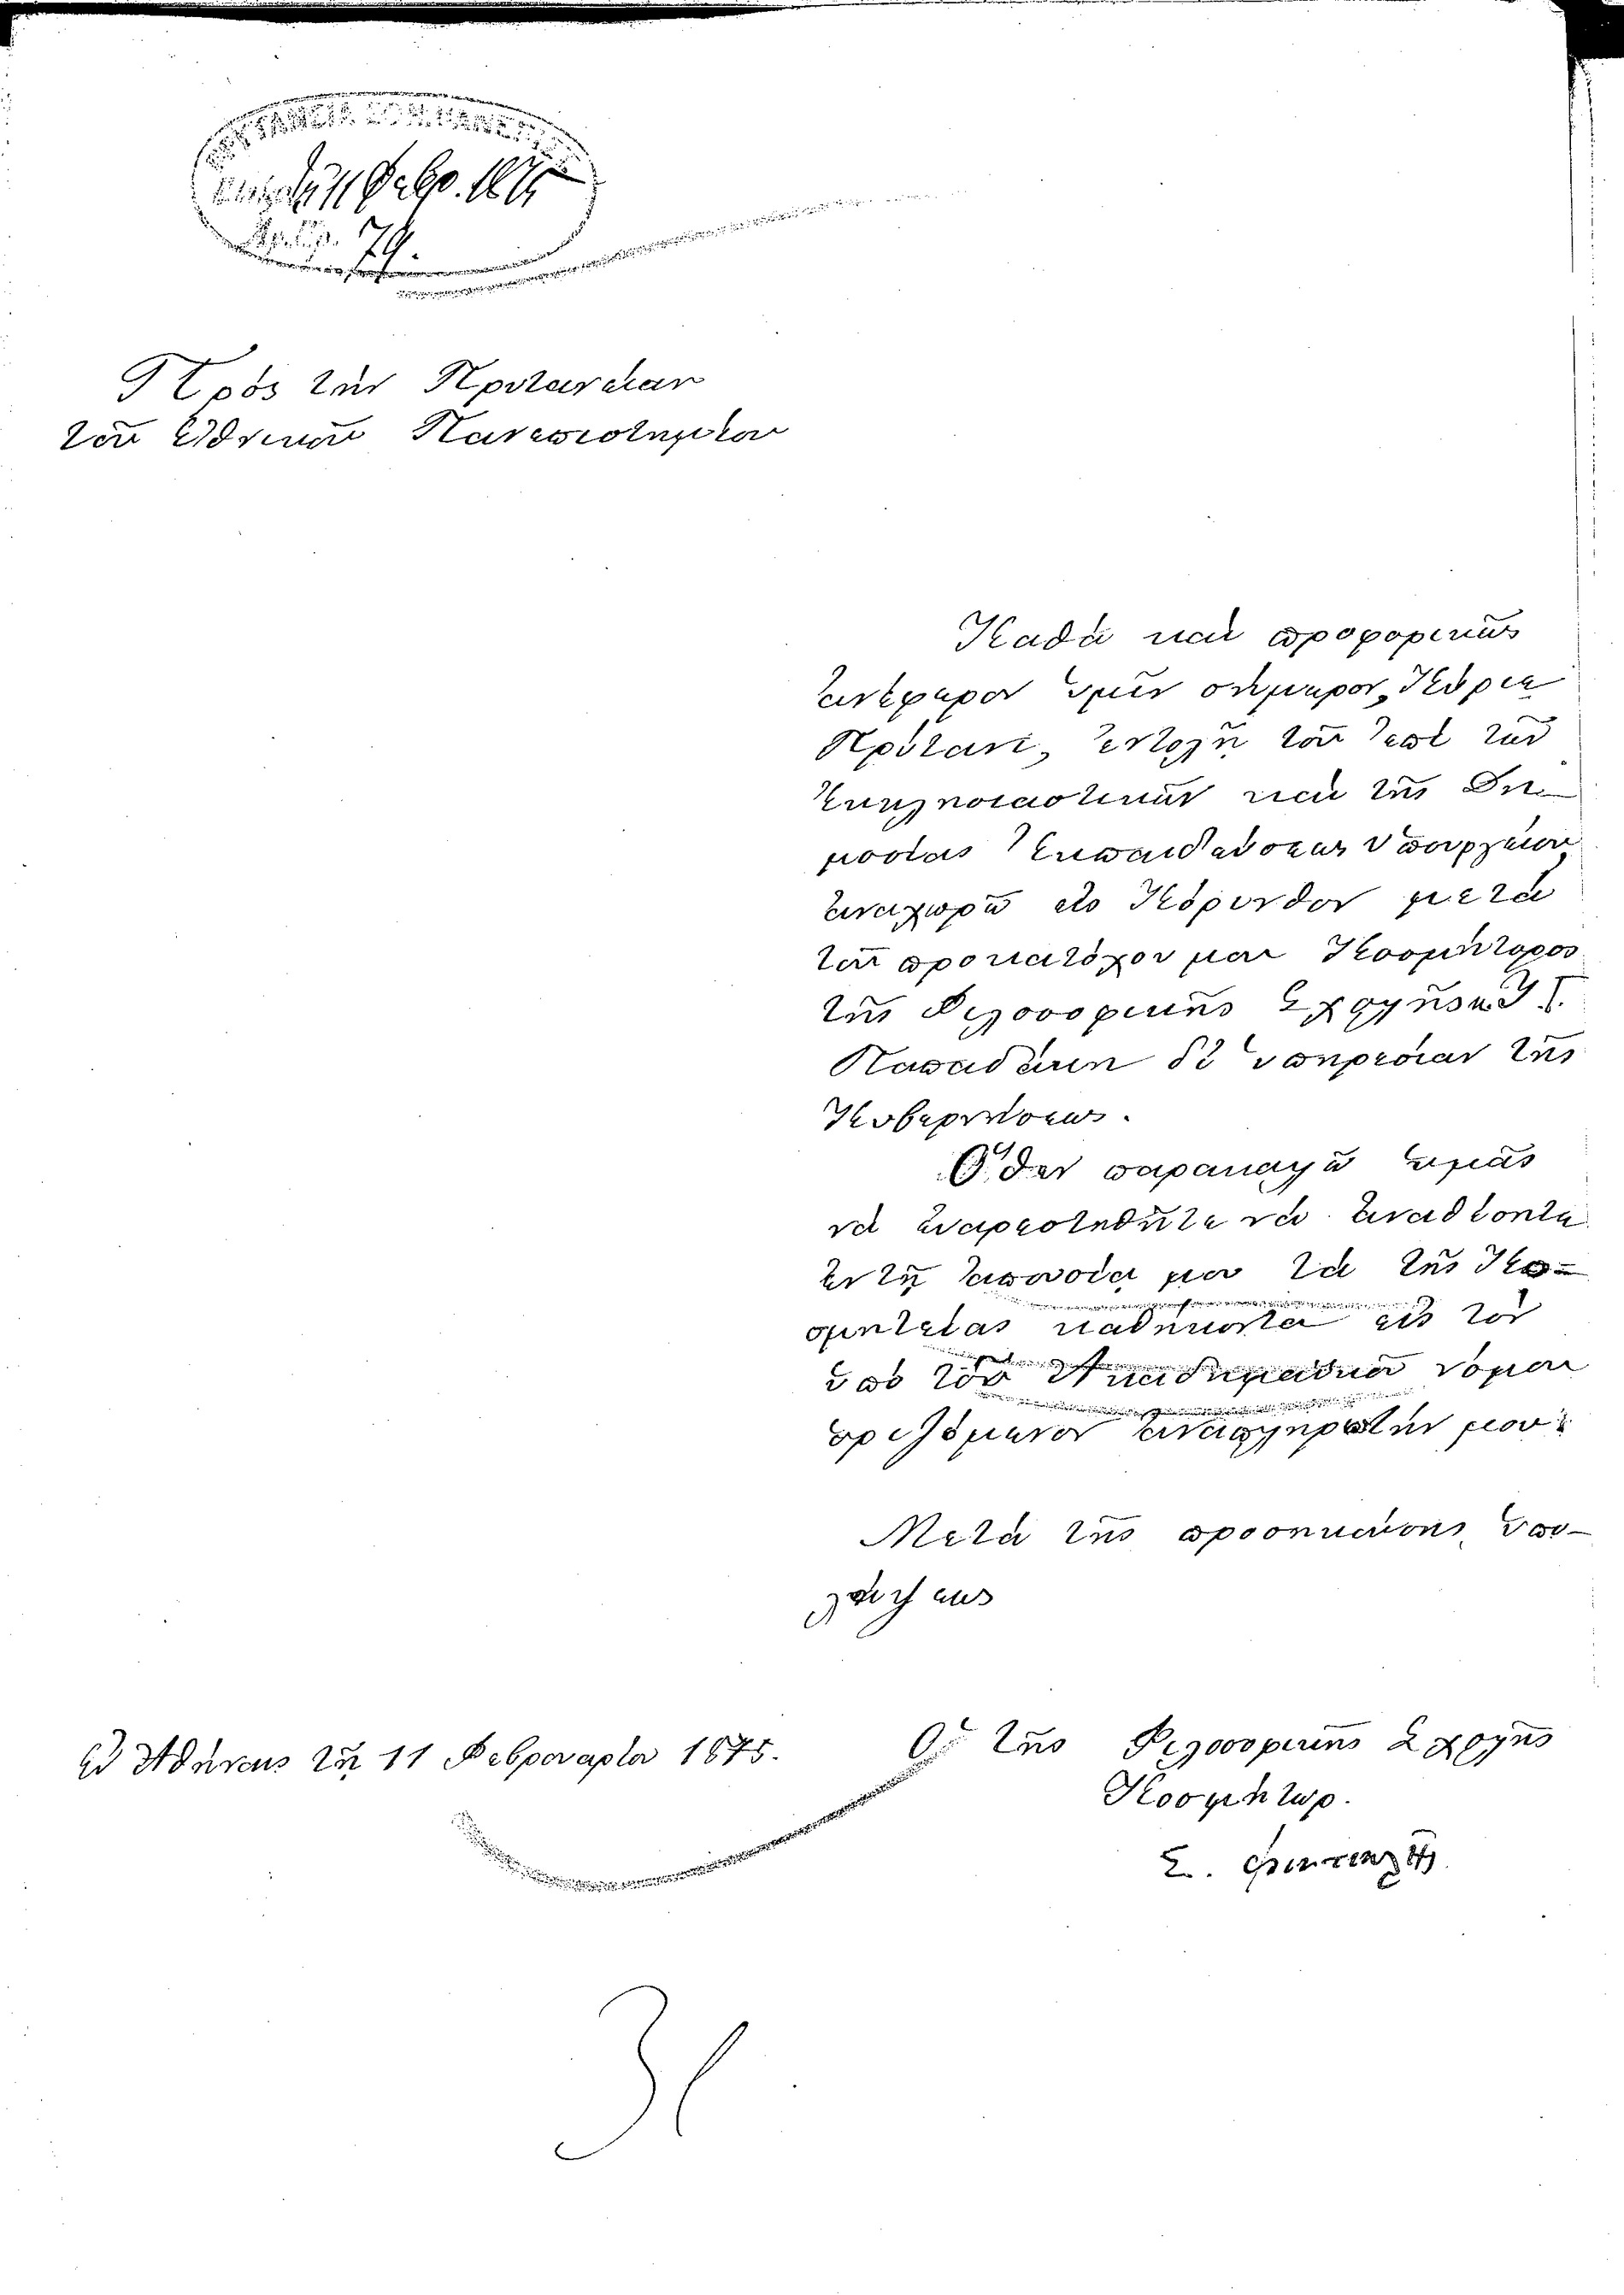 11 Φεβρ. 1875
79.
Πρὸς τὴν Πρυτανείαν
τοῦ Ἐθνικοῦ Πανεπιστημίου
Καθὰ καὶ προφορικῶς
ἀνέφερον ὑμῖν σήμερον, Κύριε
Πρύτανι, ἐντολῇ τοῦ ἐπὶ τῶν
Ἐκκλησιαστικῶν καὶ τῆς Δη-
μοσίας Ἐκπαιδεύσεως Ὑπουργείου
ἀναχωρῶ εἰς Κόρινθον μετὰ
τοῦ προκατόχου μου Κοσμήτορος
τῆς Φιλοσοφικῆς Σχολῆς κ.
δι' ὑπηρεσίαν τῆς
Κυβερνήσεως.
Ὅθεν παρακαλῶ ὑμᾶς
νὰ εὐαρεστηθῆτε νὰ ἀναθέσητε
ἐν τῇ ἀπουσίᾳ μου τὰ τῆς Κο-
σμητείας καθήκοντα εἰς τὸν
ὑπὸ τοῦ Ἀκαδημαϊκοῦ νόμου
ὁριζόμενον ἀναπληρωτήν μου.
Μετὰ τῆς προσηκούσης ὑπο-
λήψεως
Ἐν Ἀθήναις τῇ 11 Φεβρουαρίου 1875.
Ὁ τῆς Φιλοσοφικῆς Σχολῆς
Κοσμήτωρ.